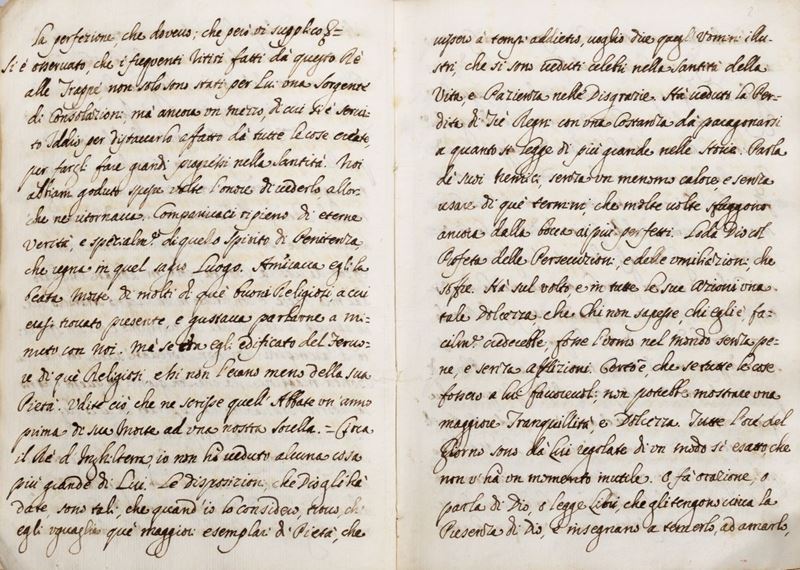 la perfezione, che dovevo; che però vi supplico. E
si è osservato, che i frequenti Ritiri fatti dà questo Rè
alle Trappe non solo sono stati per Lui una Sorgente
di Consolazioni, mà ancora un mezzo, di cui si è servi-
to Iddio per distaccarlo affatto dà tutte le cose create,
per farli fare grandi progressi nella Santità. Noi
abbiam goduto spesse volte l'onore di vederlo, allor-
che ne ritornava. Comparivaci ripieno di eterne
Verità, e specialm.e di quello Spirito di Penitenza,
che regna in quel sagro Luogo. Amirava egli la
beata Morte, di molti di què buoni Religiosi, a cui
erasi trovato presente, e gustava parlarne a mi-
nuto con Noi. Mà se egli edificato del Fervo-
re di què Religiosi, essi non l'erano meno della sua
Pietà. Udite ciò, che ne scrisse quell'Abbate un'anno
prima di sua Morte ad una nostra Sorella. = Circa
il Rè d'Inghilterra, io non hà veduto alcuna cosa
più grande di Lui. Le disposizioni, che Dio gli hà
date sono tali, che quand'io lo considero, trovo, ch'
egli uguaglia què maggiori esemplari di Pietà, che
vissero a' tempi addietro, voglio dire quegl'Uomini illu-
stri, che si sono veduti celebri nella Santità della
Vita, e Pazienza nelle Disgrazie. Hà veduti la Per-
dita di Trè Regni con una Costanza dà paragonarsi
a quanto si legge di più grande nelle Storie. Parla
de' suoi Nemici, senza un menomo calore, e senza
usare di què termini, che molte volte sfuggono
ancora dalla bocca ai più perfetti. Loda Dio col
Profeta delle Persecuzioni, e delle umiliazioni, che
soffre. Hà sul volto e in tutte le sue azioni una
tale Dolcezza che Chi non sapesse, chi egli è fa-
cilm.e crederebbe, fosse l'uomo nel mondo senza pe-
ne, e senza afflizioni. se tutte le cose
fossero a lui favorevoli, non potrebbe mostrare una
maggiore Tranquillità, e Dolcezza. Tutte l'ore del
Giorno sono dà Lui regolate di un modo sì esatto, che
non v'hà un momento inutile. O fà orazione, o
parla di Dio, o legge Libri, che gli tengono viva la
Presenza di Dio, e insegnano a temerlo, ad amarlo,